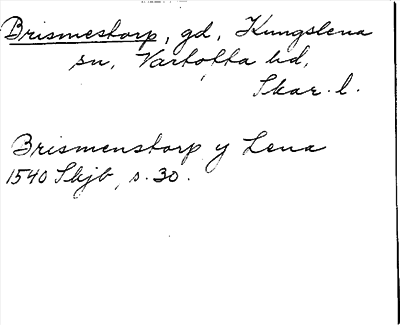 Brismestorp, gd, Kungslena
sn, Vartofta hd,
Skar. l.
Brismenstorp y Lena
1540 Skjb, s. 30.